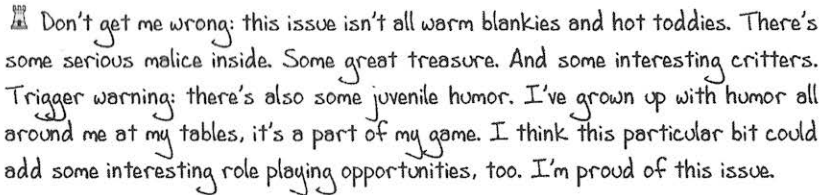 Don't get me wrong: this issue isn't all warm blankies and hot toddies. There's
some serious malice inside. Some great treasure. And some interesting critters.
Trigger warning: there's also some juvenile humor. I've grown up with humor all
around me at my tables, it's a part of my game. I think this particular bit could
add some interesting role playing opportunities, too. I'm proud of this issue.